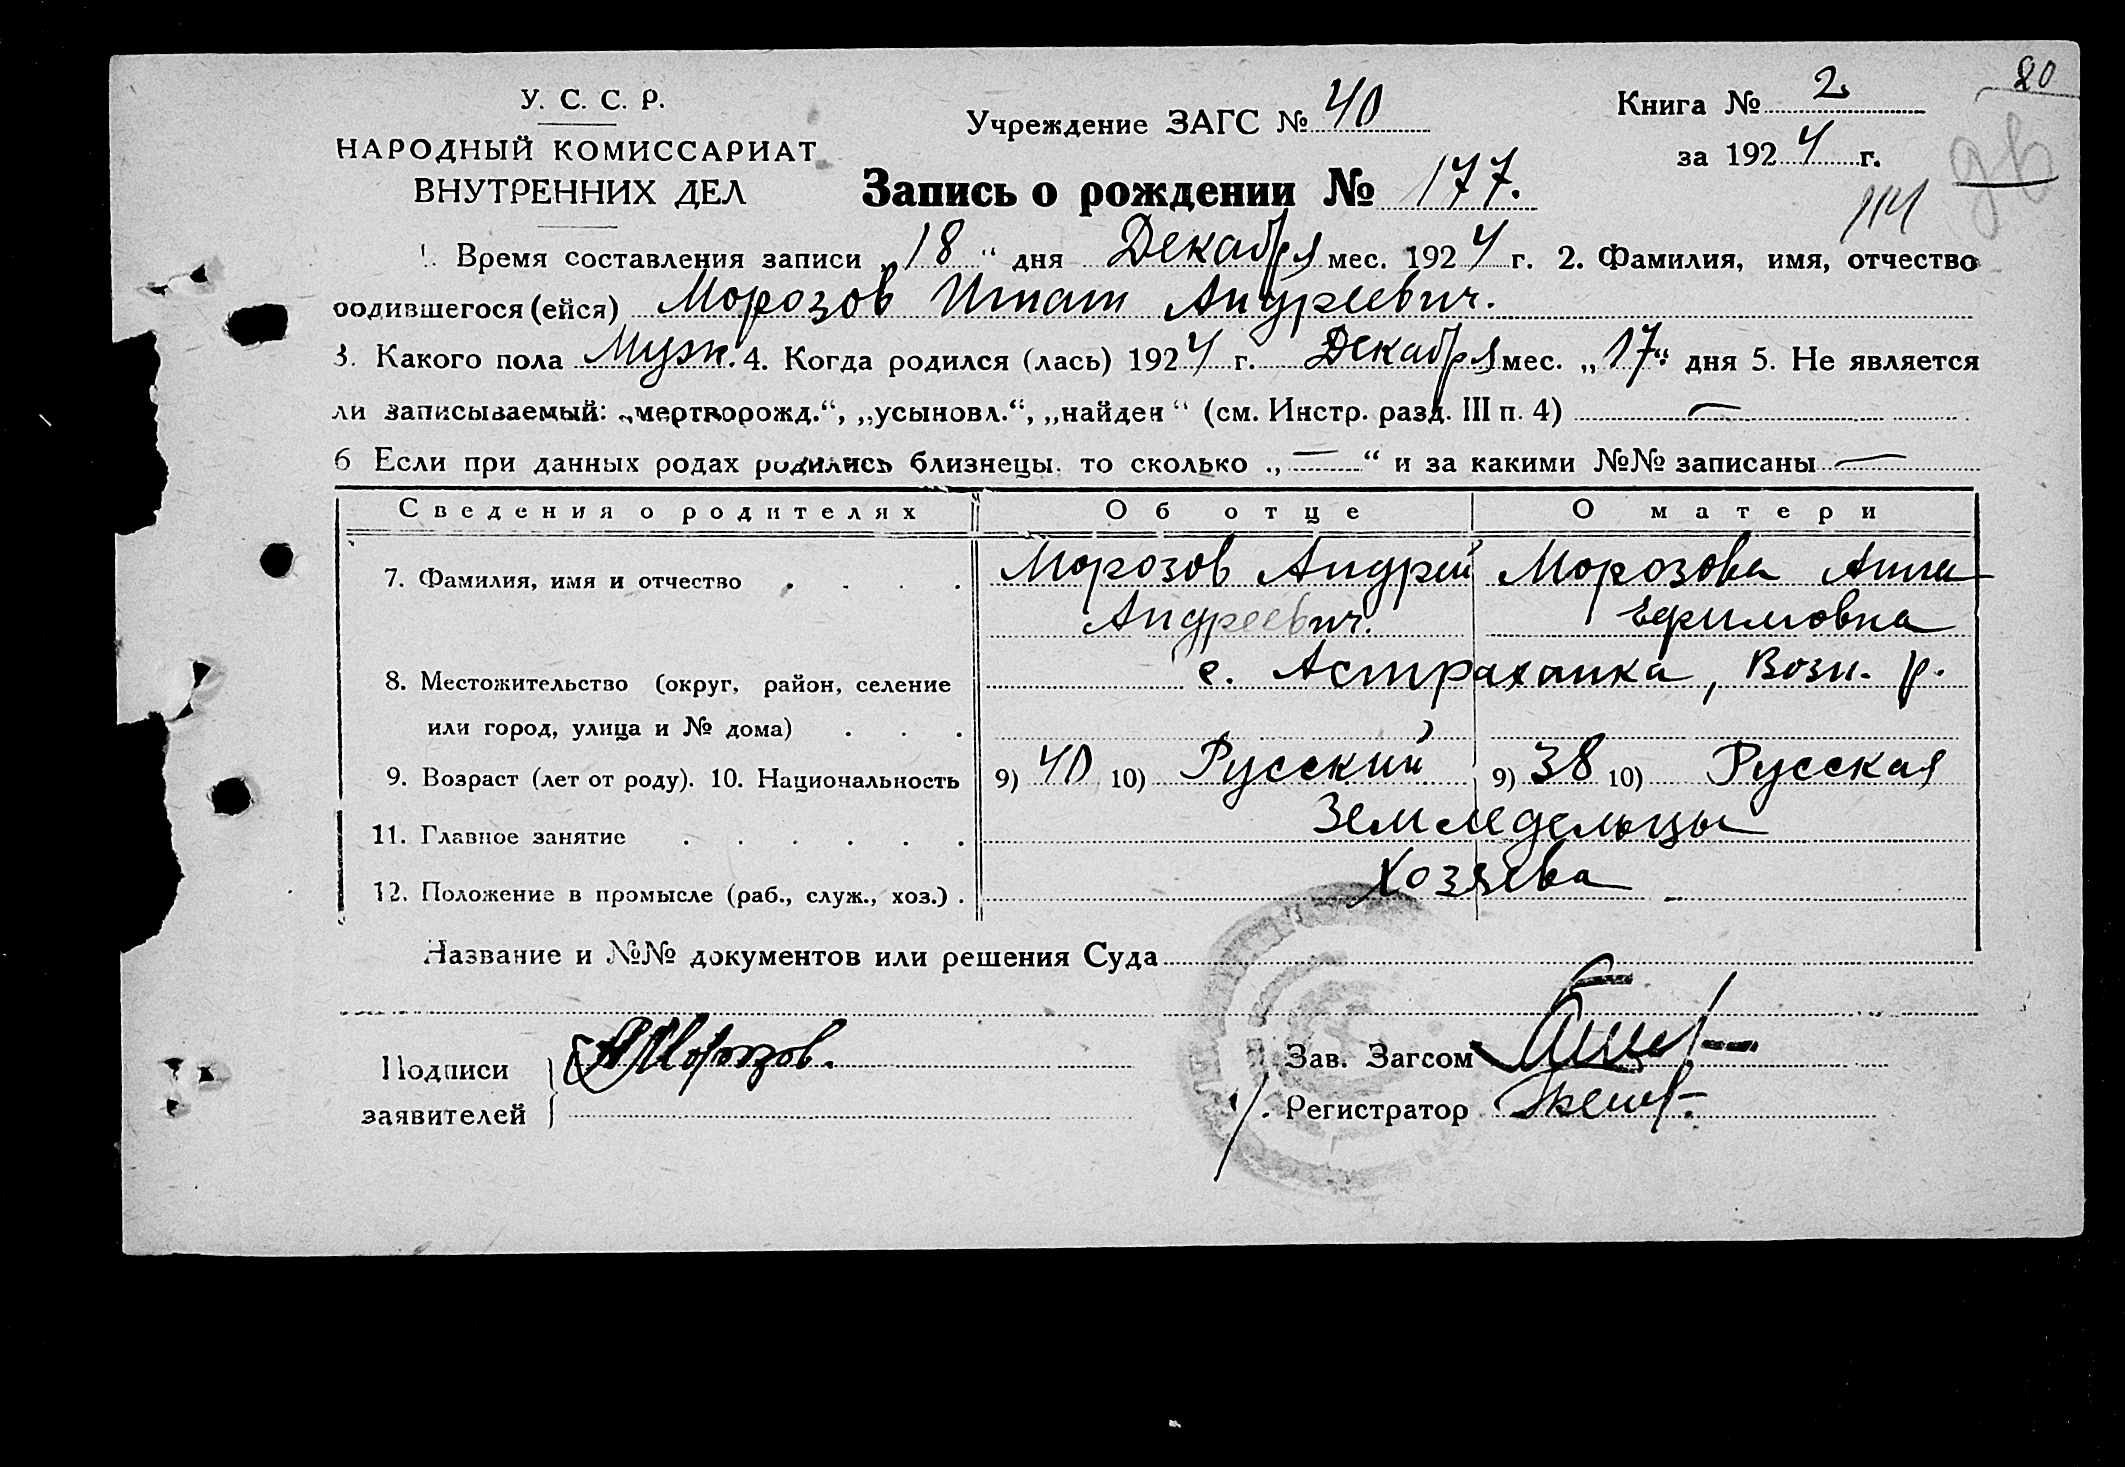 80
У. С. С. Р.
НАРОДНЫЙ КОМИССАРИАТ
ВНУТРЕННИХ ДЕЛ
Учреждение ЗАГС № 40
Книга № 2
за 1924 г.
Запись о рождении № 177.
1. Время составления записи „18“ дня Декабря мес. 1924 г. 2. Фамилия, имя, отчество
родившегося (ейся) Морозов Игнат Андреевич.
3. Какого пола Муж. 4. Когда родился (лась) 1924 г. Декабря мес. „17“ дня 5. Не является
ли записываемый: „мертворожд.“, „усыновл.“, „найден“ (см. Инстр. разд. III п. 4) —
6 Если при данных родах родились близнецы, то сколько „—“ и за какими №№ записаны —
Сведения о родителях Об отце О матери
7. Фамилия, имя и отчество . . . . Морозов Андрей Морозова Анна
Андреевич. Ефимовна
8. Местожительство (округ, район, селение с. Астраханка, Возн. р.
или город, улица и № дома) . . .
9. Возраст (лет от роду). 10. Национальность 9) 40 10) Русский 9) 38 10) Русская
11. Главное занятие . . . . . . Земледельцы
12. Положение в промысле (раб., служ., хоз.) . Хозяева
Название и №№ документов или решения Суда
Подписи АМорозов. Зав. Загсом
заявителей Регистратор